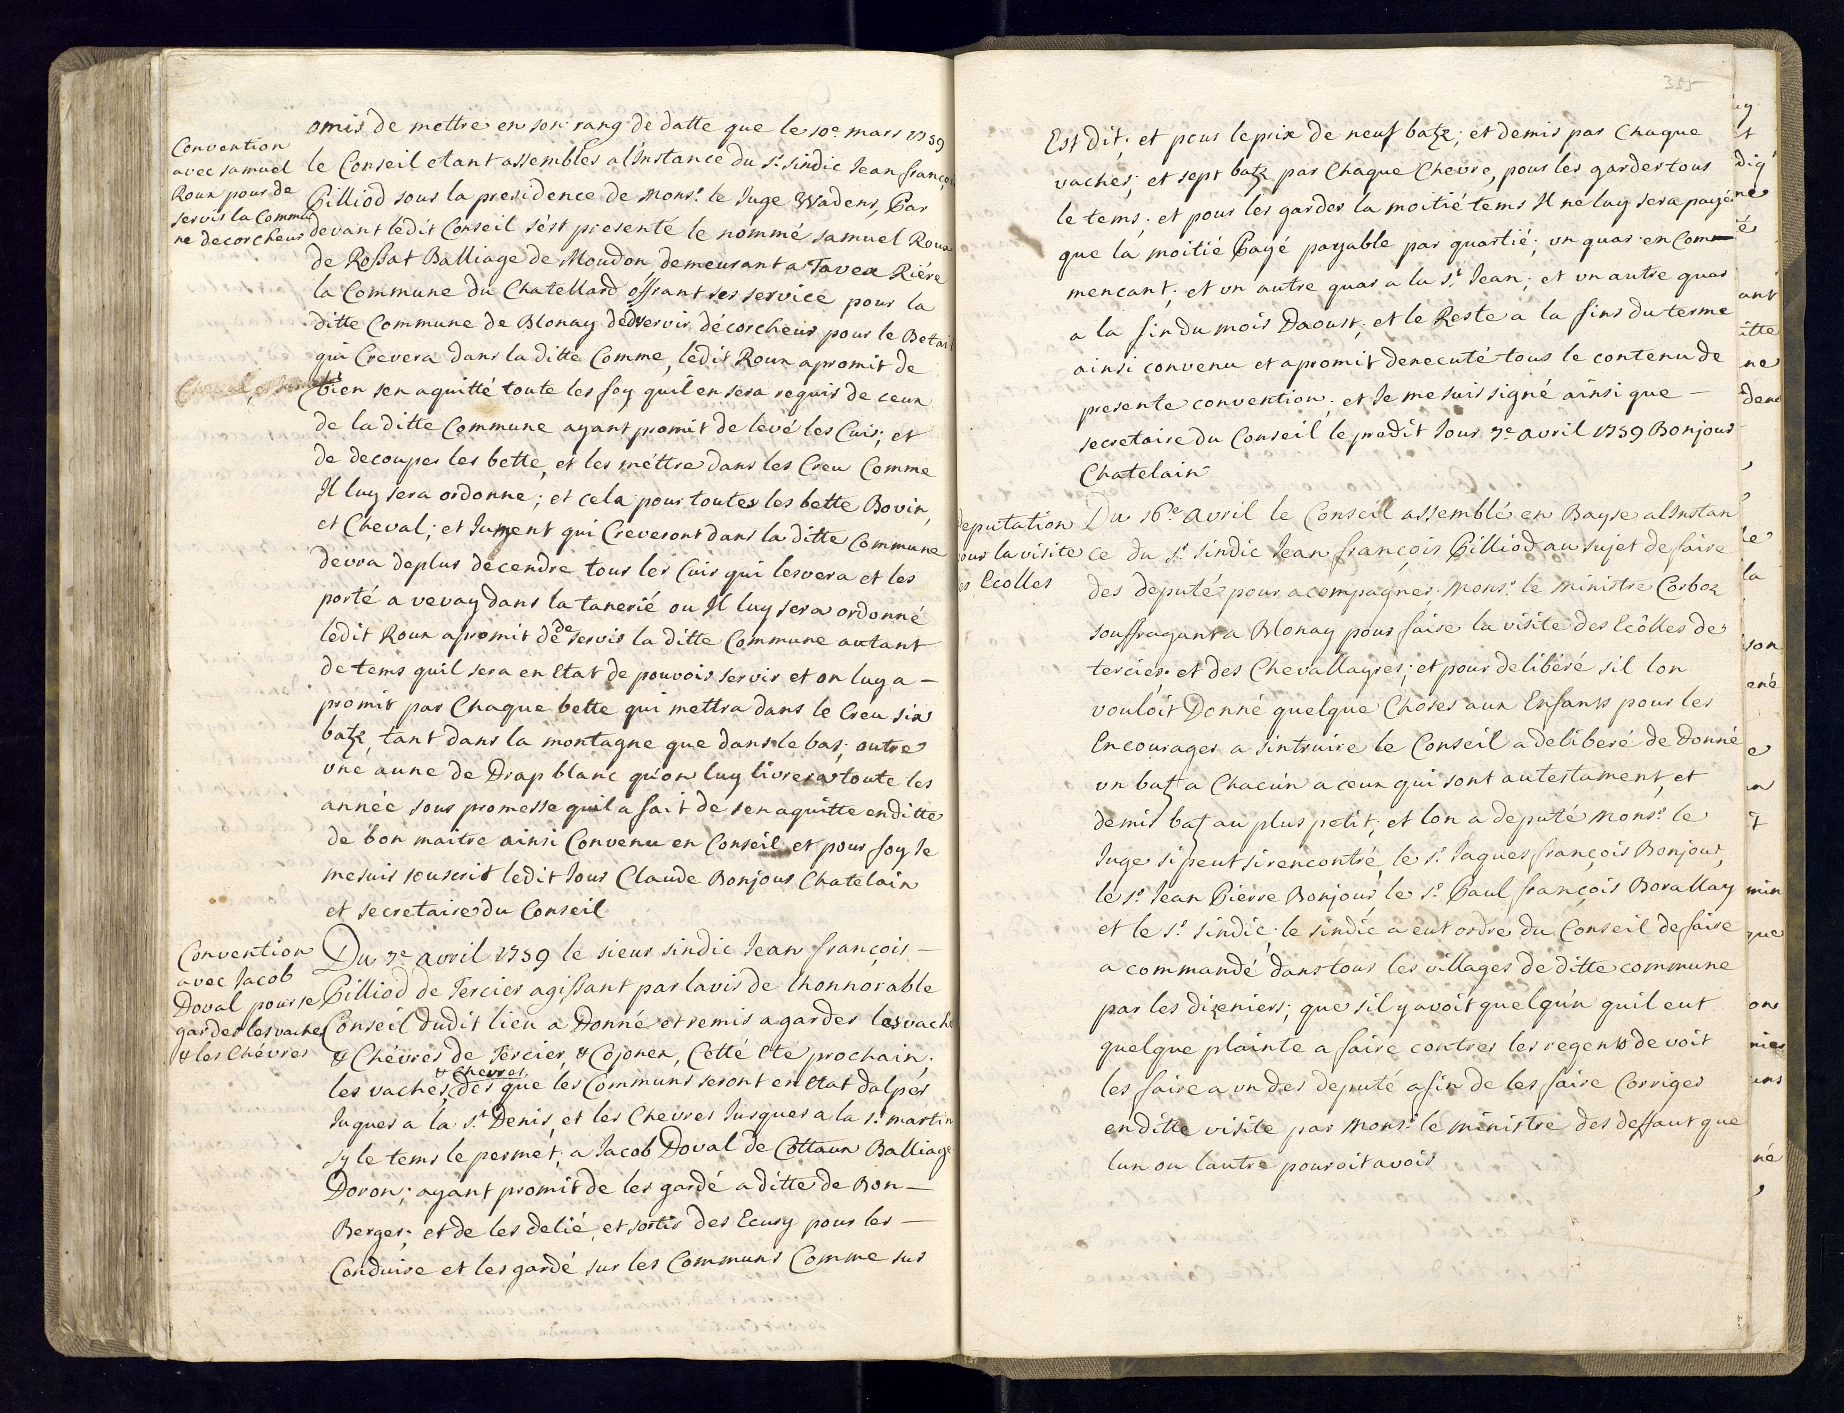 Convention
avec samuel
Roux pour de
servir la Commu
ne decorcheur
omis de mettre en son rang de datte que le 10e mars 1759
le Conseil etant assemblés a l'Instance du sr. sindic Jean françoi
Gilliod sous la presidence de Monsr. le Juge Wadens, Par
devant lédit Conseil s'est presenté le nommé samuel Roux
de Rossat Balliage de Moudon demeurant a Tavex Riére
la Commune du Chatellard offrant ses service pour la
ditte Commune de Blonay dedservir décorcheur pour le Betail
qui Crevera dans la ditte Comme, lédit Roux a promit de
bien sen aquitté toute les foy quil en sera requis de ceux
de la ditte Commune ayant promit de levé les Cuir; et
de decouper les bette, et les méttre dans les Creu Comme
Il luy sera ordonne; et cela pour toutes les bette Bovin,
et Cheval; et Jument qui Creveront dans la ditte Commune
devra deplus décendre tous les Cuir qui lesvera et les
porté a vevay dans la tanerié ou Il luy sera ordonné
lédit Roux a promit dé de servir la ditte Commune autant
de tems quil sera en Etat de pouvoir servir et on luy a —
promit par Chaque bette qui mettra dans le Creu six
batz, tant dans la montagne que dans le bas; outre
une aune de Drap blanc qu'on luy livrera toute les
année sous promesse quil a fait de sen aquitte en ditte
de bon maitre ainsi Convenu en Conseil et pour foy Je
me suis souscrit ledit Jour Claude Bonjour Chatelain
et secretaire du Conseil
Convention
avec Jacob
Doval pour se
garder les vaches
& les Chévres
Du 7e avril 1759 le sieur sindic Jean françois —
Gilliod de Tercier agissant par lavis de lhonnorable
Conseil dudit lieu a Donné et remis a garder les vache
& Chévres de Tercier, & Cojonex, Cetté Eté prochain;
& Chevres
les vaches, dés que les Communs seront en Etat dalpér
Juques a la st. Denis, et les Chevres Jusques a la st. martin
sy le tems le permet; a Jacob Doval de Cottaux Balliage
Doron; ayant promit de les gardé a ditte de Bon —
Berger; et de les delié, et sortir des Ecury pour les —
Conduire et les gardé sur les Communs Comme sus
355
Est dit; et pour le prix de neuf batz; et demis par Chaque
vaches; et sept batz par Chaque Chevre, pour les garder tous
le tems. et pour les garder la moitié tems Il ne luy sera payé
que la moitié Payé payable par quartié; un quar en Com—
mençant; et un autre quar a la st. Jean; et un autre quar
a la fin du mois Daoust; et le Reste a la fins du terme
ainsi convenu et a promit dexecuté tous le contenu de
presente convention; et Je me suis signé ainsi que —
secretaire du Conseil le predit Jour 7e avril 1759 Bonjour
Chatelain
deputation
our la visite
es Ecolles
Du 16me avril le Conseil assemblé en Bayse a lInstan
ce du sr. sindic Jean françois Gilliod au sujet de faire
des deputé pour acompagner Monsr. le Ministre Corboz
souffragant a Blonay pour faire la visite des Ecôlles de
tercier et des Chevallayres; et pour deliberé sil lon
vouloit Donné quelque Choses aux Enfants pour les
Encourager a sintruire le Conseil a deliberé de Donné
un batz a Chacun a ceux qui sont au testament, et
demis batz au plus petit; et lon a deputé Monsr. le
Juge si peut si rencontré, le sr. Jaques françois Bonjour,
le sr. Jean Pierre Bonjour, le sr. Paul françois Borallay
et le sr. sindic; le sindic a eut ordre du Conseil de faire
a commandé dans tous les villages de ditte commune
par les dizeniers; que sil y avoit quelqu'n quil eut
quelque plainte a faire contres les regents de voit
les faire a un des deputé afin de les faire Corriger
en ditte visite par Monsr. le ministre des deffaut que
lun ou lautre pouroit avoir